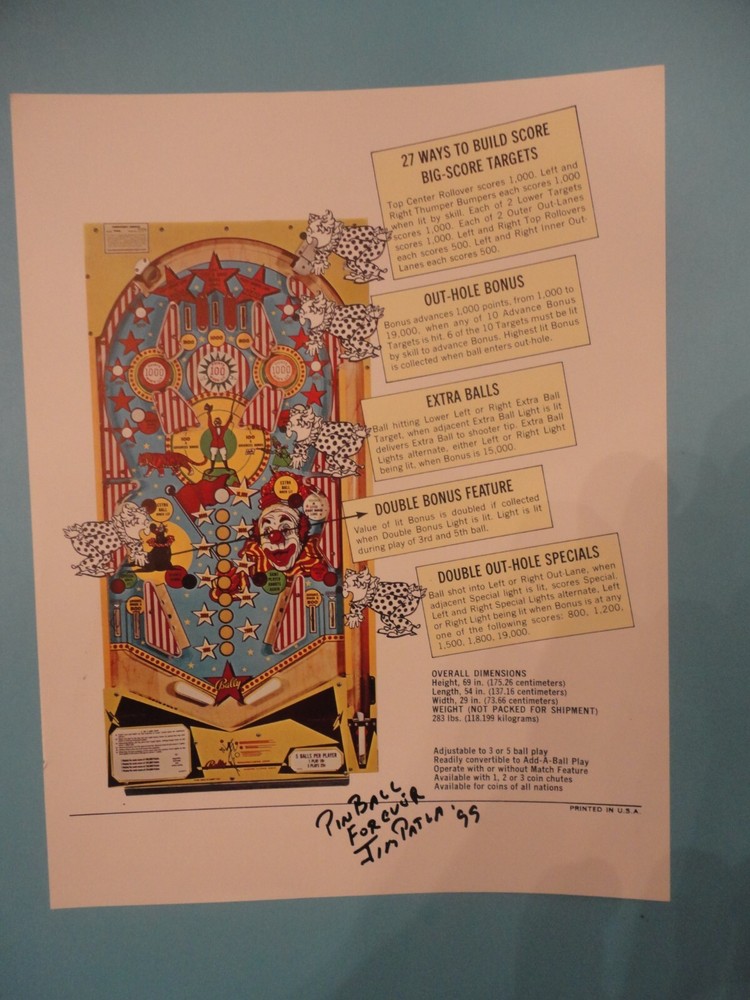 27 WAYS TO BUILD SCORE
BIG-SCORE TARGETS
Top Center Rollover scores 1,000. Left and
Right Thumper Bumpers each scores 1,000
when lit by skill. Each of 2 Lower Targets
scores 1,000. Each of 2 Outer Out-Lanes
scores 1,000. Left and Right Top Rollovers
each scores 500. Left and Right Inner Out-
Lanes each scores 500.
OUT-HOLE BONUS
Bonus advances 1,000 points, from 1,000 to
19,000, when any of 10 Advance Bonus
Targets is hit. 6 of the 10 Targets must be lit
by skill to advance Bonus. Highest lit Bonus
is collected when ball enters out-hole.
EXTRA BALLS
Ball hitting Lower Left or Right Extra Ball
Target, when adjacent Extra Ball Light is lit
delivers Extra Ball to shooter tip. Extra Ball
Lights alternate, either Left or Right Light
being lit, when Bonus is 15,000.
DOUBLE BONUS FEATURE
Value of lit Bonus is doubled if collected
when Double Bonus Light is lit. Light is lit
during play of 3rd and 5th ball.
DOUBLE OUT-HOLE SPECIALS
Ball shot into Left or Right Out-Lane, when
adjacent Special light is lit, scores Special.
Left and Right Special Lights alternate, Left
or Right Light being lit when Bonus is at any
one of the following scores: 800, 1,200,
1,500, 1,800, 19,000.
OVERALL DIMENSIONS
Height, 69 in. (175.26 centimeters)
Length, 54 in. (137.16 centimeters)
Width, 29 in. (73.66 centimeters)
WEIGHT (NOT PACKED FOR SHIPMENT)
283 lbs. (118.199 kilograms)
Adjustable to 3 or 5 ball play
Readily convertible to Add-A-Ball Play
Operate with or without Match Feature
Available with 1, 2 or 3 coin chutes
Available for coins of all nations
PRINTED IN U.S.A.
1000
100
1000
EXTRA
BALL
EXTRA
BALL
Bally
5 BALLS PER PLAYER
PINBALL
FOREVER
JIM PATLA '99